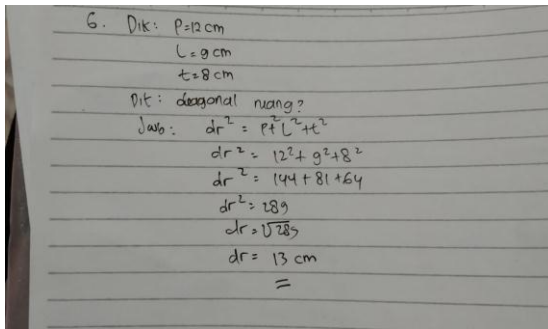 6. Dik: P=12 cm
L=9 cm
t=8 cm
Dit: diagonal ruang?
Jawb: dr² = P²+L²+t²
dr² = 12²+9²+8²
dr² = 144+81+64
dr² = 289
dr = √289
dr = 13 cm